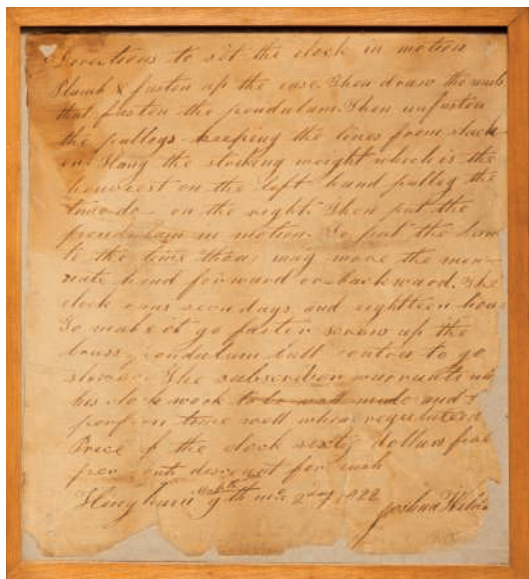 Directions to set the clock in motion
Plumb & fasten up the case. Then draw the
that fasten the pendulum. Then unfasten
the pulleys keeping the lines from slack-
en. Hang the striking weight which is the
heaviest on the left hand pulley the
time do- on the right. Then put the
pendulum in motion. To put the
to the time thou may move the min-
ute hand forward or backward. The
clock runs seven days and eighteen
To make it go faster screw up the
brass pendulum ball to go
slower. The subscriber warrants
his clock work to be well made and
perform time well when regulated
Price of the clock sixty dollars five
per cent discount for cash
Hingham 9th mo 2nd 1822
Joshua Wilder